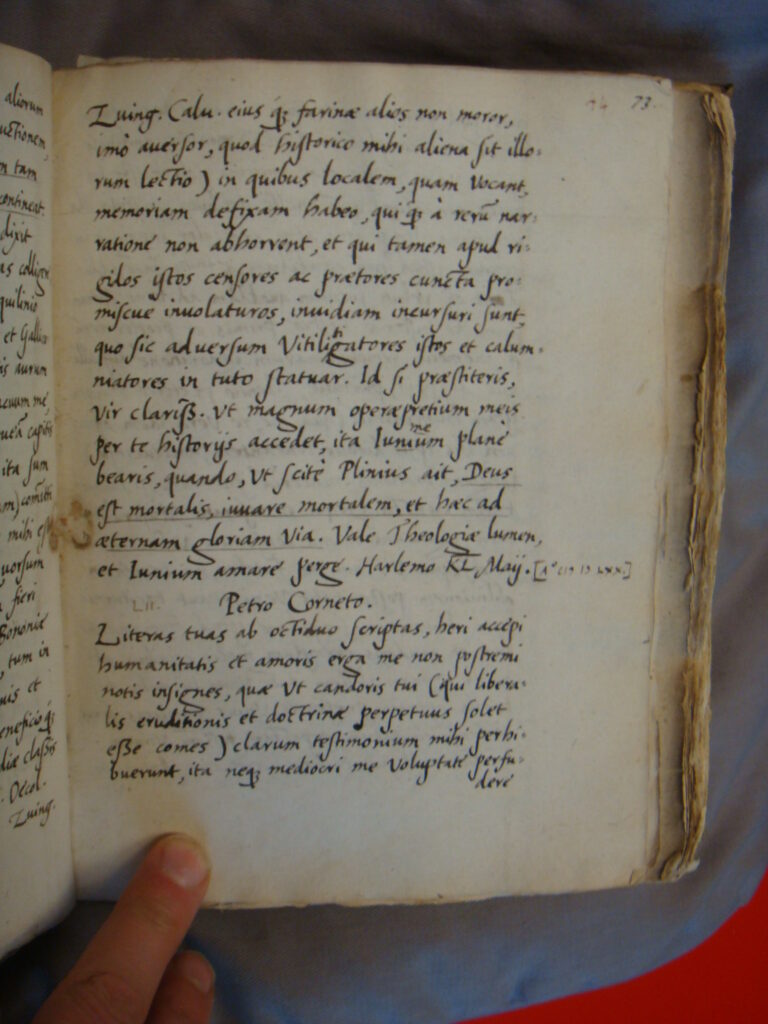 aliorum
uctionem,
m tam
contineat.
dixit
as colligen
quilinio
et Gallia
is aurum
acuum me,
ueā capitis
ita sum
am) com̄itti
mihi est
uorsum
fieri
Bononiæ
, tum in
uis et
eneficioq́ꝫ
diæ classis
. Oecol.
Zuing.
74 73
Zuing. Calu. eius q́ꝫ farinæ alios non moror,
imò auersor, quod historico mihi aliena sit illo-
rum lectio) in quibus localem, quam vocant,
memoriam defixam habeo, qui q́ꝫ à rerū nar-
ratione non abhorrent, et qui tamen apud ri-
gidos istos censores ac prætores cuncta pro-
miscue inuolaturos, inuidiam incursuri sunt,
quo sic adversum Vitilitigatores istos et calum-
niatores in tuto statuar. Id si præstiteris,
vir clariß. vt magnum operæpretium meis
per te historijs accedet, ita Iunium me planè
bearis, quando, vt scitè Plinius ait, Deus
est mortalis, iuuare mortalem, et hæc ad
æternam gloriam via. Vale Theologiæ lumen,
et Iunium amare perge. Harlemo KL Maij.
LII. Petro Corneto.
Literas tuas ab octiduo scriptas, heri accepi
humanitatis et amoris erga me non postremi
notis insignes, quæ vt candoris tui (qui libera-
lis eruditionis et doctrinæ perpetuus solet
eße comes) clarum testimonium mihi perhi-
buerunt, ita neqꝫ mediocri me voluptate perfu-
dere